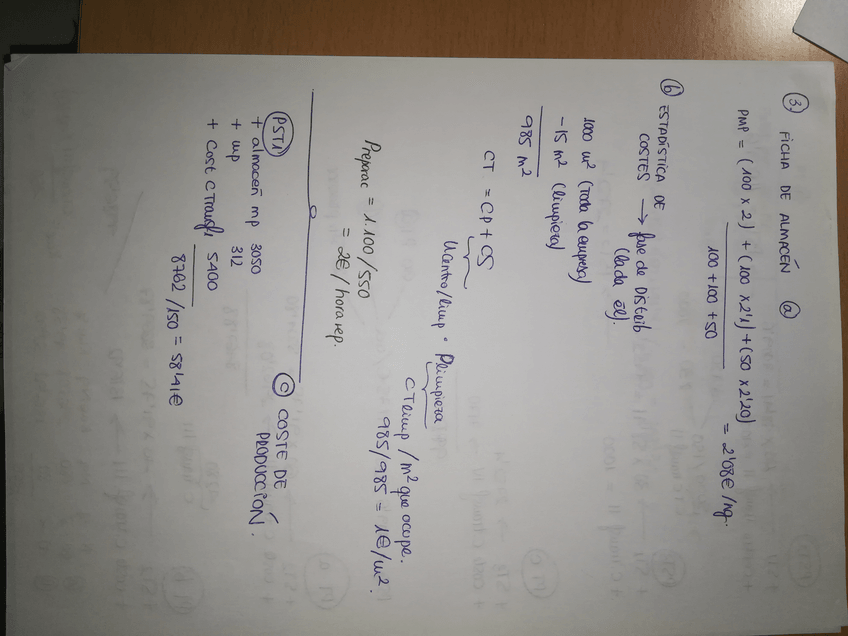 ③ FICHA DE ALMACÉN ⓐ
PMP = (100 x 2) + (100 x 2'1) + (50 x 2'20) = 2'08€/kg.
100 + 100 + 50
ⓑ ESTADÍSTICA DE
COSTES → fase de Distrib
(dada él).
1000 m² (Toda la empresa)
- 15 m² (limpieza)
985 m²
CT = CP + CS
Ucentro/limp · Plimpieza
CTlimp / m² que ocupe.
985/985 = 1€/m².
Preparac = 1.100/550
= 2€/hora rep.
ⓒ COSTE DE
PRODUCCIÓN.
PST1
+ almacén mp 3050
+ mp 312
+ Cost CTransf 5400
8762/150 = 58'41€